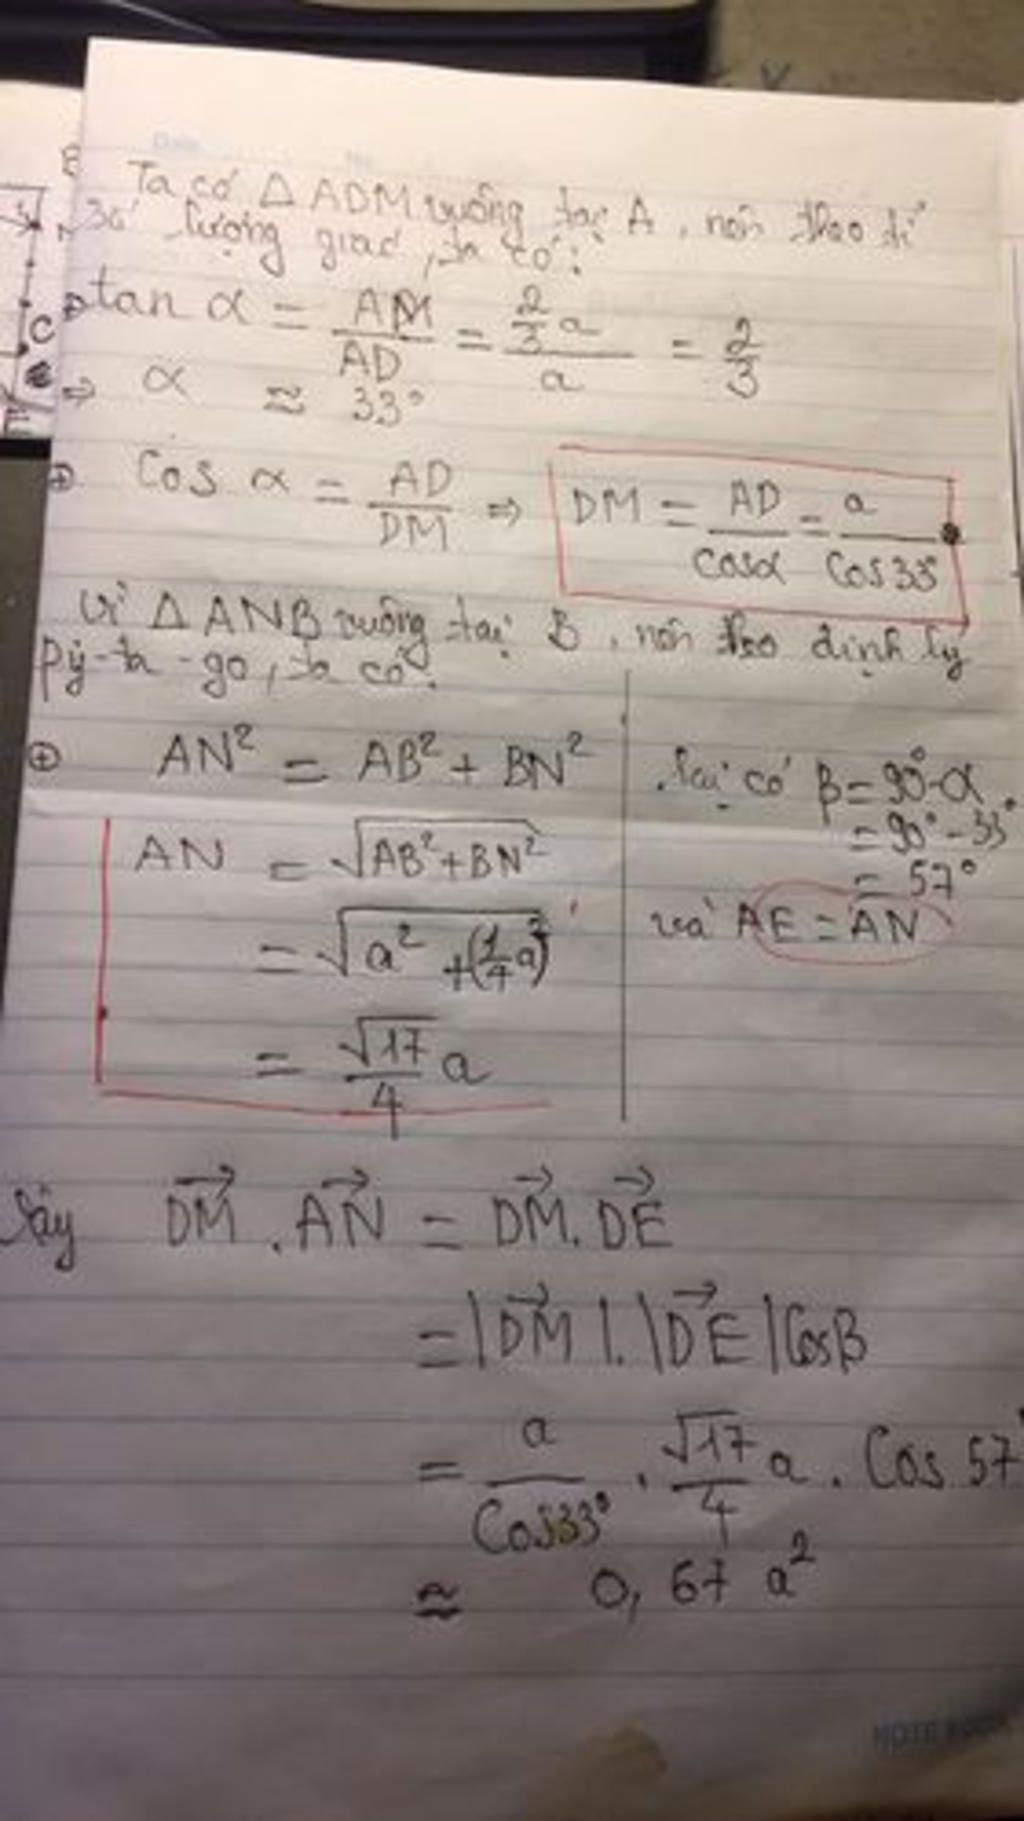 Ta có Δ ADM vuông tại A, nên theo tỉ
số lượng giác, ta có:
tan α = AM/AD = (2/3 a)/a = 2/3
⇒ α ≈ 33°
⊕ Cos α = AD/DM ⇒ DM = AD/cosα = a/Cos33°
Vì Δ ANB vuông tại B, nên theo định lý
Py-ta-go, ta có:
⊕ AN² = AB² + BN²
AN = √(AB²+BN²)
= √(a² + (1/4 a)²)
= √17/4 a
lại có β = 90°-α
= 90° - 33°
= 57°
và AE = AN
Vậy DM→ . AN→ = DM→ . DE→
= |DM→| . |DE→| Cosβ
= a/Cos33° . √17/4 a . Cos 57°
≈ 0,67 a²
C
NOTE BOOK